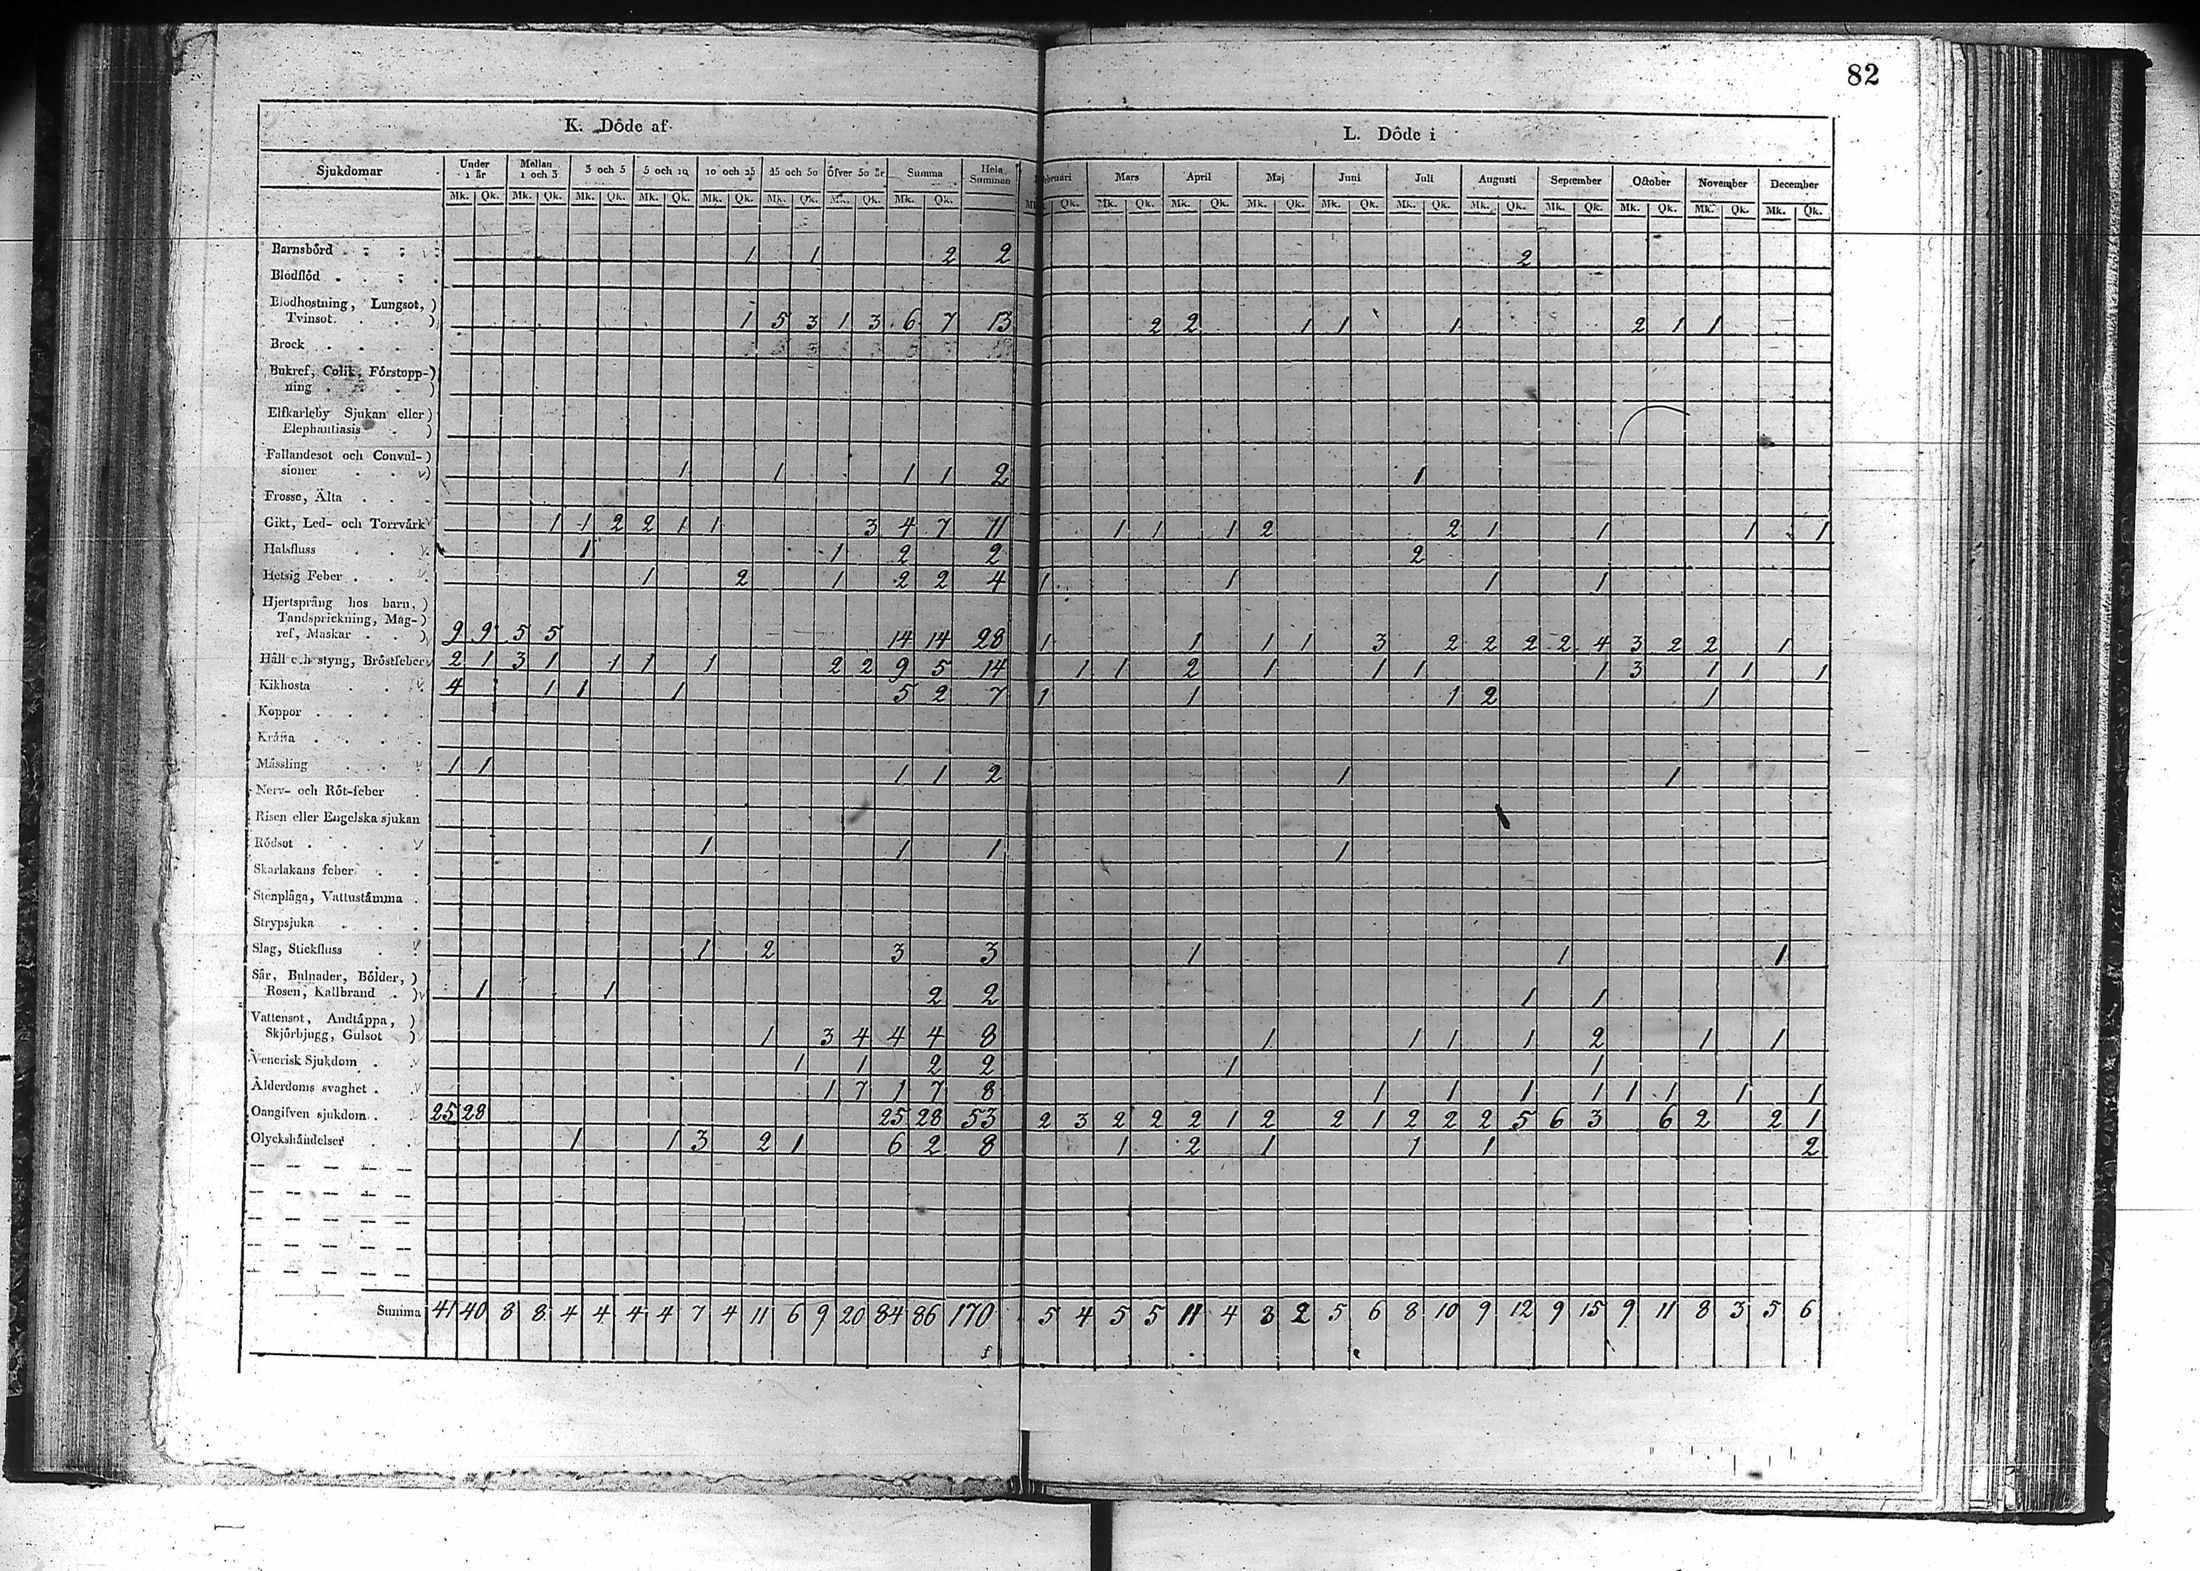 82
K. Döde af
L. Döde i
Sjukdomar Under 1 år Mellan 1 och 3 3 och 5 5 och 10 10 och 25 25 och 50 öfver 50 år Summa Hela Summan
Mars April Maj Juni Juli Augusti September October November December
Mk. Qk. Mk. Qk. Mk. Qk. Mk. Qk. Mk. Qk. Mk. Qk. Mk. Qk. Mk. Qk.
Qk. Mk. Qk. Mk. Qk. Mk. Qk. Mk. Qk. Mk. Qk. Mk. Qk. Mk. Qk. Mk. Qk. Mk. Qk. Mk. Qk.
Barnsbörd 1 1 2 2 2
Blodflöd
Blodhostning, Lungsot,
Tvinsot 1 5 3 1 3 6 7 13 2 2 1 1 1 2 1 1
Brock
Bukref, Colik, Förstopp-
ning
Elfkarleby Sjukan eller
Elephantiasis
Fallandesot och Convul-
sioner 1 1 1 1 2 1
Frosse, Älta
Gikt, Led- och Torrvärk 1 1 2 2 1 1 3 4 7 11 1 1 1 2 2 1 1 1 1
Halsfluss 1 1 2 2 2
Hetsig Feber 1 2 1 2 2 4 1 1 1 1
Hjertsprång hos barn,
Tandsprickning, Mag-
ref, Maskar 9 9 5 5 14 14 28 1 1 1 1 3 2 2 2 2 4 3 2 2 1
Håll och styng, Bröstfeber 2 1 3 1 1 1 1 2 2 9 5 14 1 1 2 1 1 1 1 3 1 1 1
Kikhosta 4 1 1 1 5 2 7 1 1 1 2 1
Koppor
Kräfta
Mässling 1 1 1 1 2 1 1
Nerv- och Röt-feber
Risen eller Engelska sjukan
Rödsot 1 1 1 1
Skarlakans feber
Stenplåga, Vattustämma
Strypsjuka
Slag, Stickfluss 1 2 3 3 1 1 1
Sår, Bulnader, Bölder,
Rosen, Kallbrand 1 1 2 2 1 1
Vattensot, Andtäppa,
Skjörbjugg, Gulsot 1 3 4 4 4 8 1 1 1 1 2 1 1
Venerisk Sjukdom 1 1 2 2 1 1
Ålderdoms svaghet 1 7 1 7 8 1 1 1 1 1 1 1 1
Oangifven sjukdom 25 28 25 28 53 2 3 2 2 2 1 2 2 1 2 2 2 5 6 3 6 2 2 1
Olyckshändelser 1 1 3 2 1 6 2 8 1 2 1 1 1 2
Summa 41 40 8 8 4 4 4 4 7 4 11 6 9 20 84 86 170 5 4 5 5 11 4 3 2 5 6 8 10 9 12 9 15 9 11 8 3 5 6